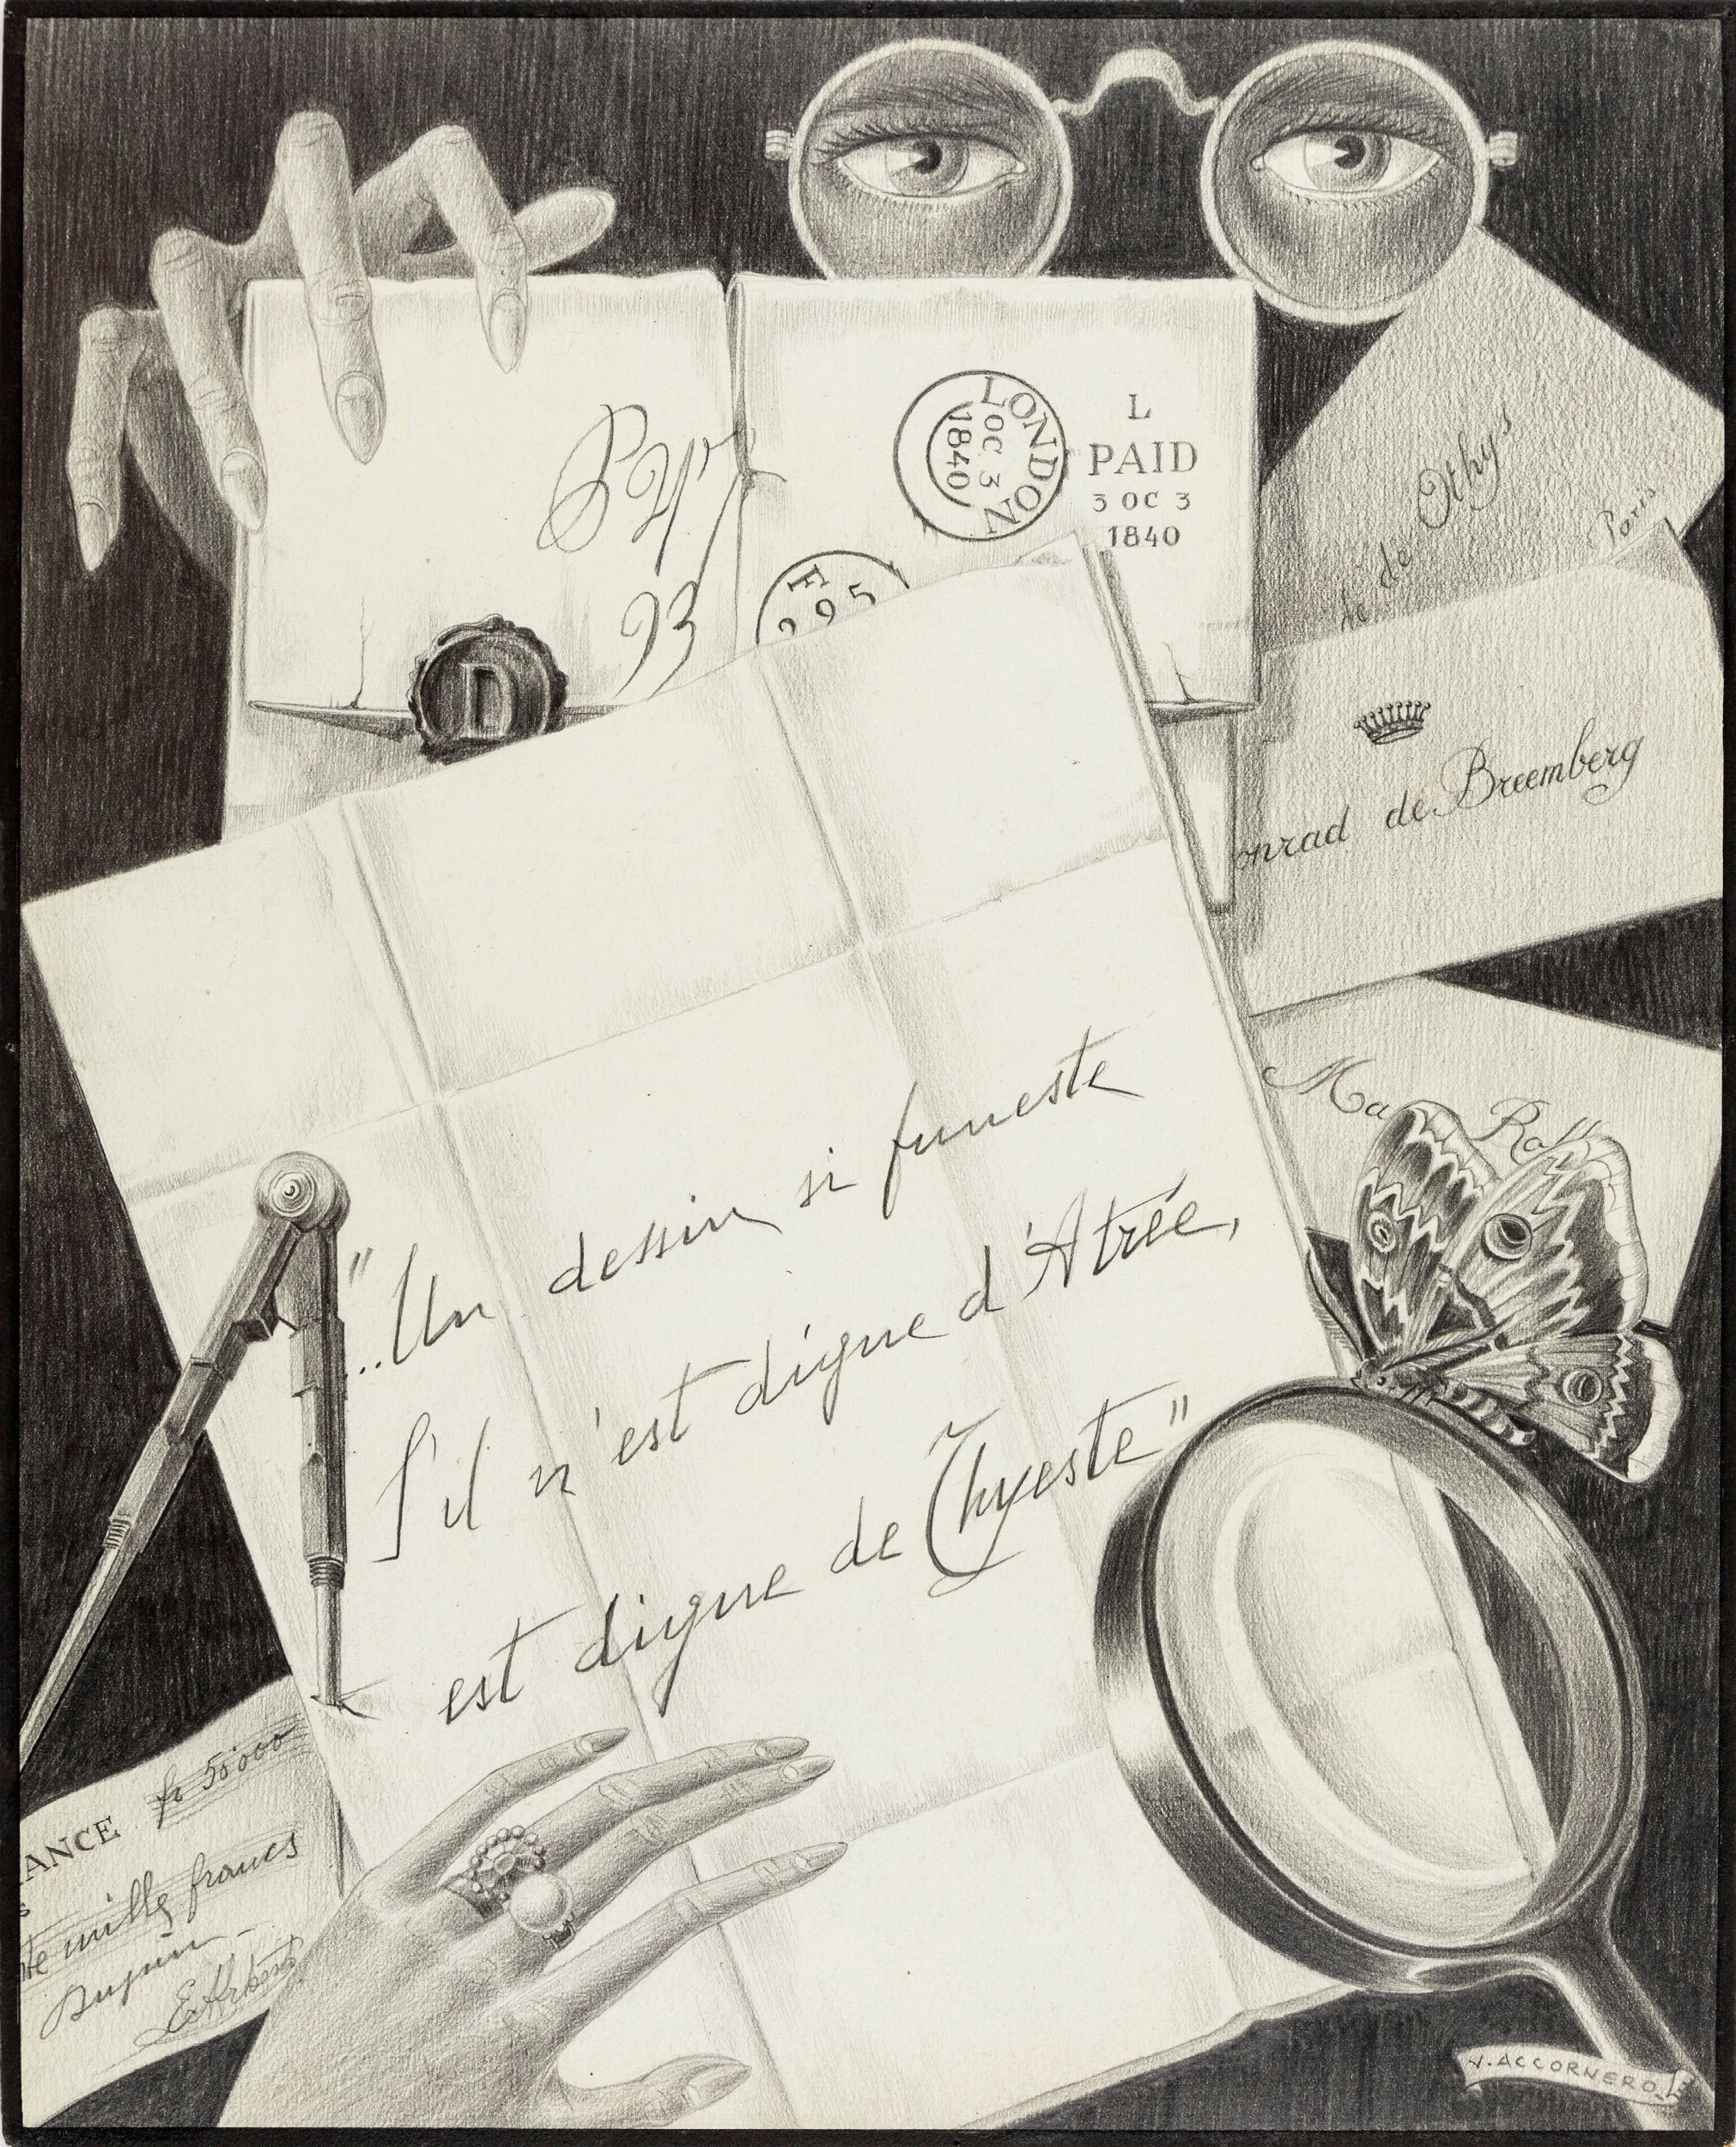 LONDON
OC 3
1840
L
PAID
3 OC 3
1840
F
295
93
D
de Othys
Paris
onrad de Breemberg
Ma
"...Un dessin si funeste
S'il n'est digne d'Atrée,
est digne de Thyeste"
ANCE fr 50'000
s
te mille francs
Dupin
V. ACCORNERO